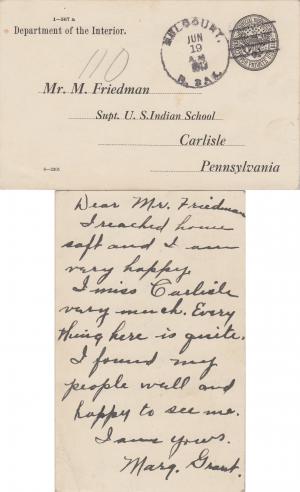 1-567 a
Department of the Interior.
110
JUN
19
A.M.
S. DAK.
Mr. M. Friedman
Supt. U. S. Indian School
Carlisle
Pennsylvania
Dear Mr. Friedman
I reached home
saft and I am
very happy.
I miss Carlisle
very much. Every
thing here is quite.
I found my
people well and
happy to see me.
I am yours.
Marg. Grant.